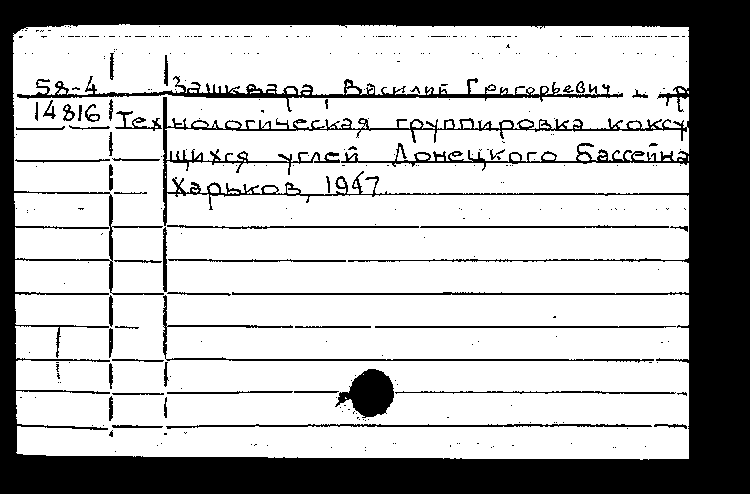 58-4 Зашквара, Василий Григорьевич и др
14816 Технологическая группировка коксу
щихся углей Донецкого бассейна
Харьков, 1947.